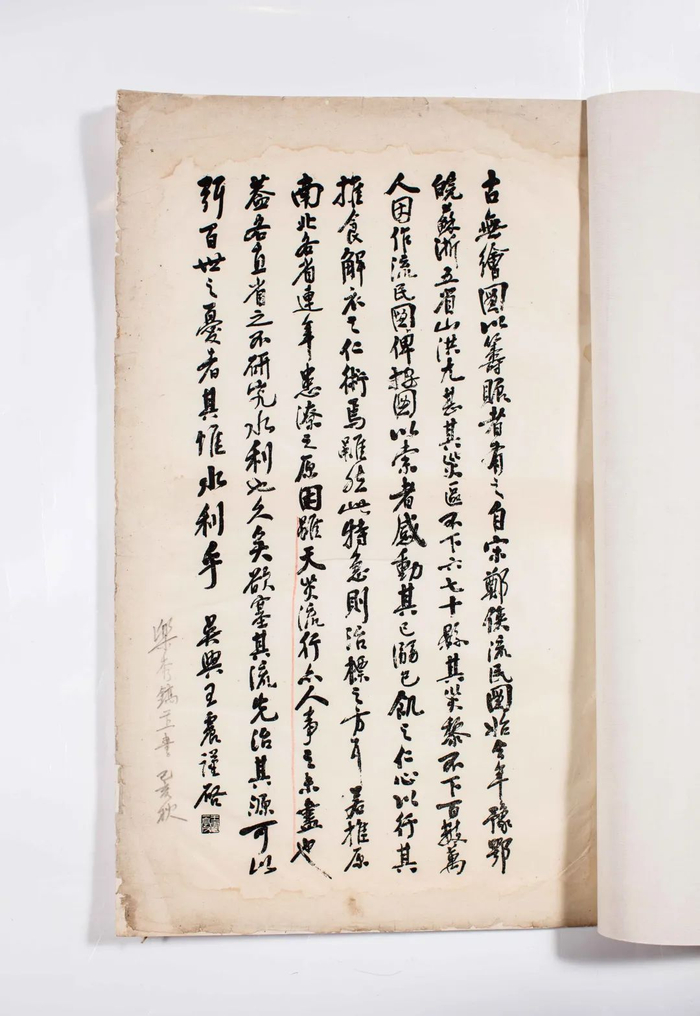 古無繪圖以籌賑者有之自宋鄭俠流民圖始今年豫鄂
皖蘇浙五省山洪尤甚其災區不下六七十縣其災黎不下百數萬
人因作流民圖俾按圖以索者感動其己溺己飢之仁心以行其
推食解衣之仁術焉雖然此特急則治標之方耳若推原
南北各省連年患潦之原因雖天災流行亦人事之未盡也
蓋各直省之不研究水利也久矣欲塞其流先治其源可以
弭百世之憂者其惟水利乎 吳興王震謹啓
樂 鎬 己亥秋